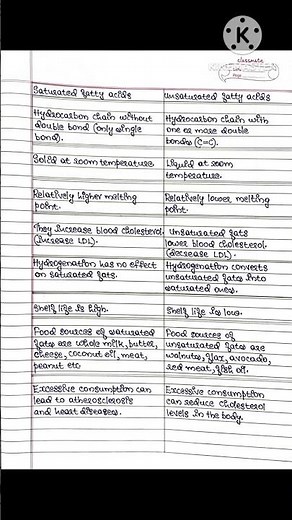 K
classmate
Date
Page
Saturated fatty acids
Unsaturated fatty acids
Hydrocarbon chain without
double bond (only single
bond).
Hydrocarbon chain with
one or more double
bonds (C=C).
Solid at room temperature
Liquid at room
temperature.
Relatively higher melting
point.
Relatively lower melting
point.
They increase blood cholesterol
(increase LDL).
Unsaturated fats
lower blood cholesterol
(decrease LDL).
Hydrogenation has no effect
on saturated fats.
Hydrogenation converts
unsaturated fats into
saturated ones.
Shelf life is high.
Shelf life is low.
Food sources of saturated
fats are whole milk, butter,
cheese, coconut oil, meat,
peanut etc
Food sources of
unsaturated fats are
walnuts, flax, avocado,
red meat, fish oil.
Excessive consumption can
lead to atherosclerosis
and heart diseases.
Excessive consumption
can reduce cholesterol
levels in the body.